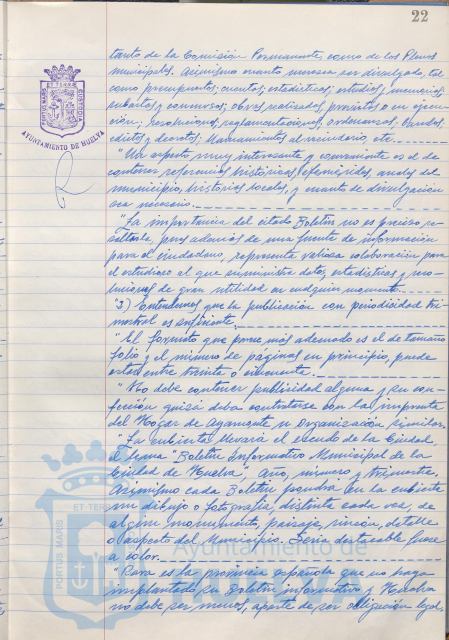 22
tanto de la Comisión Permanente, como de los Plenos
municipales. Asimismo cuanto merezca ser divulgado, tal
como presupuestos; cuentas; estadísticas; estudios; memorias;
subastas y concursos; obras realizadas, previstas o en ejecu-
ción; resoluciones, reglamentaciones, ordenanzas, bandos,
edictos y decretos; llamamientos al vecindario, etc.
"Un aspecto muy interesante y conveniente es el de
contener referencias históricas, efemérides, anales del
municipio, historias locales, y cuanto de divulgación
sea necesario.
"La importancia del citado Boletín no es preciso re-
saltarla, pues además de una fuente de información
para el ciudadano, representa valiosa colaboración para
el estudioso al que suministre datos, estadísticas y
de gran utilidad en cualquier momento.
"3) Entendemos que la publicación con periodicidad tri-
mestral es suficiente.
"El formato que parece más adecuado es el de tamaño
folio y el número de páginas en principio, puede
estar entre treinta o cincuenta.
"No debe contener publicidad alguna y su con-
fección quizá deba contratarse con la imprenta
del Hogar de Ayamonte u Organización similar.
"La cubierta llevará el escudo de la Ciudad,
el lema "Boletín Informativo Municipal de la
Ciudad de Huelva", año, número y trimestre.
Asimismo cada Boletín pondrá en la cubierta
un dibujo o fotografía, distinta cada vez, de
algún monumento, paisaje, rincón, detalle
o aspecto del Municipio. Sería destacable fuese
a color.
"Rara es la provincia española que no haya
implantado su Boletín informativo y Huelva
no debe ser menos, aparte de ser obligación legal,
PORTUS MARIS
ET TERRAE
CUSTODIA
AYUNTAMIENTO DE HUELVA
PORTUS MARIS
ET TERR
Ayuntamiento de